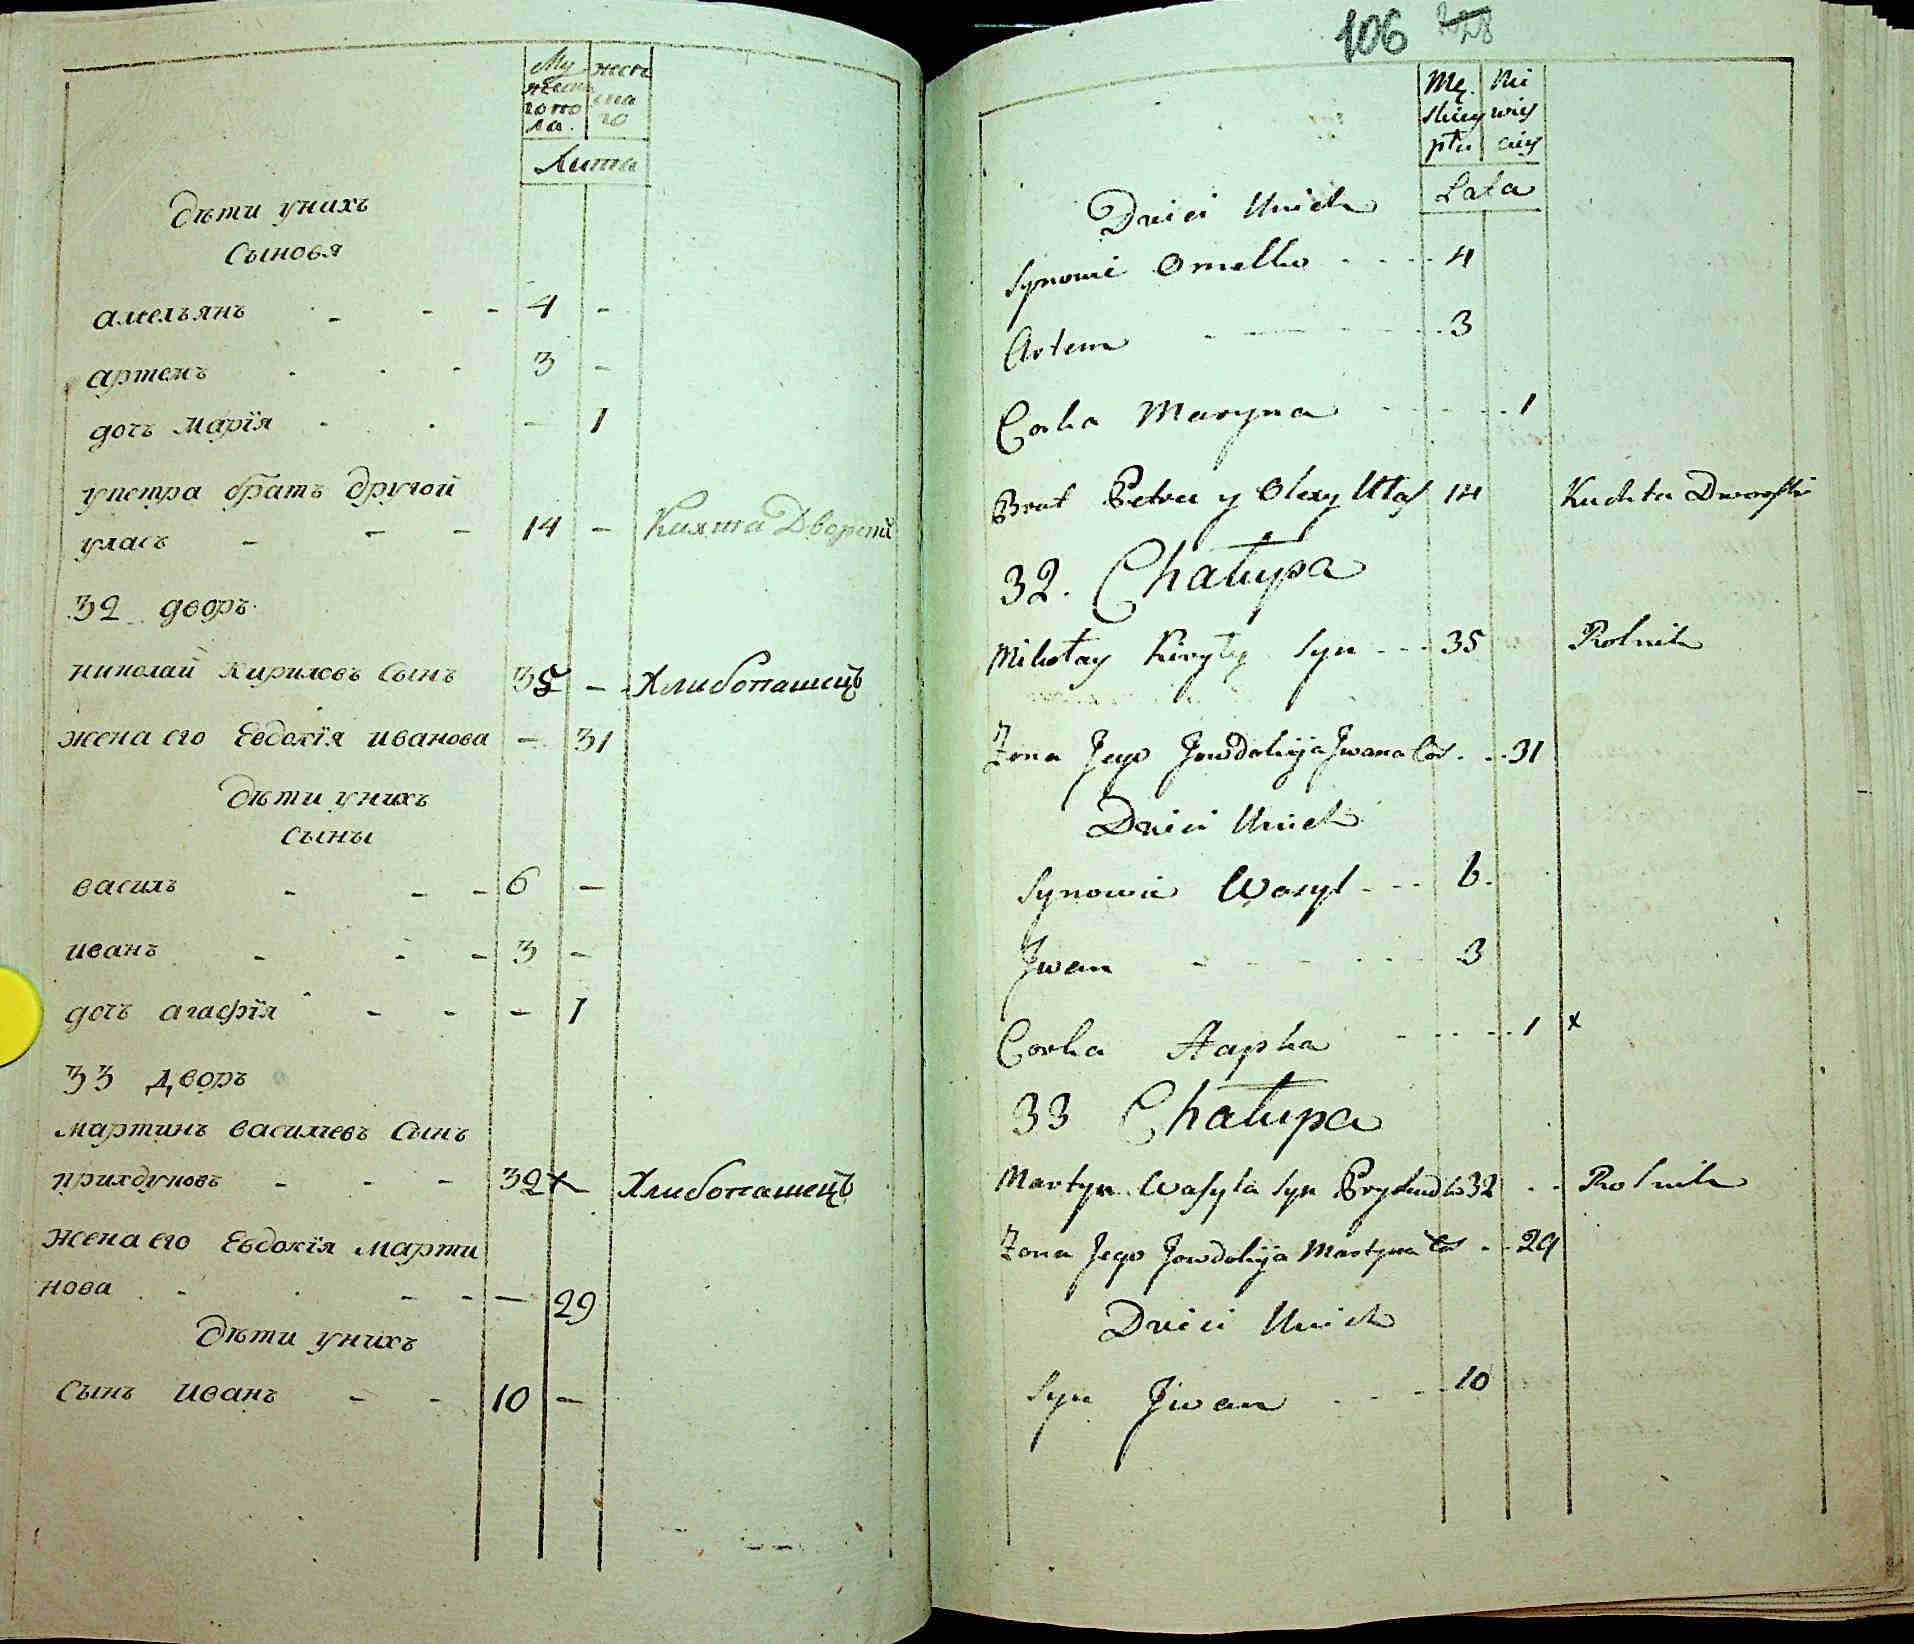 Му жеск
жеска ска
го по го
ла.
Лита
дѣти унихъ
Сыновя
амельянъ - - - 4 -
артемъ - - - 3 -
дочь марія - - - 1
упетра братъ другой
уласъ - - - 14 - Кихта Дворскій
32 дворъ
николай Кириловъ Сынъ 35 - Хлибопашецъ
жена его Евдокія иванова - 31
дѣти унихъ
Сыны
василь - - - 6 -
иванъ - - - 3 -
дочь агафія - - - 1
33 дворъ
мартинъ василъевъ Сынъ
32 - Хлибопашецъ
жена его Евдокія марти
нова - - - - 29
дѣти унихъ
Сынъ иванъ - - 10 -
106
Mę. Nie
skiey wie
płci ciey
Lata
Dzieci Unich
Synowie Omelko - - - 4
Artem - - - 3
Corka Maryna - - - 1
Brat Petra y Olexy Ułas 14 Kuchta Dworski
32. Chałupa
Mikołay Kiryły Syn - - - 35 Rolnik
Zona Jego Jowdokija Jwana Cor. - - 31
Dzieci Unich
Synowie Wasyl - - - 6.
Jwan - - - 3
Corka Hapka - - - 1 x
33 Chałupa
Martyn Wasyla Syn 32 - - Rolnik
Zona Jego Jowdokija Martyna Cor - - 29
Dzieci Unich
Syn Jwan - - - 10